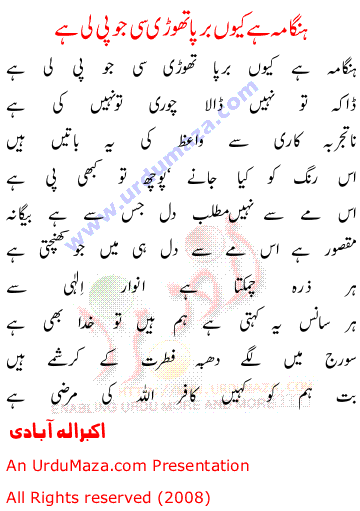 ہنگامہ ہے کیوں برپا تھوڑی سی جو پی لی ہے
ہنگامہ ہے کیوں برپا تھوڑی سی جو پی لی ہے
ڈاکہ تو نہیں ڈالا چوری تو نہیں کی ہے
ناتجربہ کاری سے واعظ کی یہ باتیں ہیں
اس رنگ کو کیا جانے، پوچھو تو کبھی پی ہے
اس مے سے نہیں مطلب دل جس سے ہے بیگانہ
مقصور ہے اس مے سے دل ہی میں جو کھنچتی ہے
ہر ذرہ چمکتا ہے انوار الٰہی سے
ہر سانس یہ کہتی ہے ہم ہیں تو خدا بھی ہے
سورج میں لگے دھبہ فطرت کے کرشمے ہیں
بت ہم کو کہیں کافر اللہ کی مرضی ہے
www.urdumaza.com
WWW.URDUMAZA.COM
ENABLING URDU MORE AND MORE
اکبر الہ آبادی
An UrduMaza.com Presentation
All Rights reserved (2008)